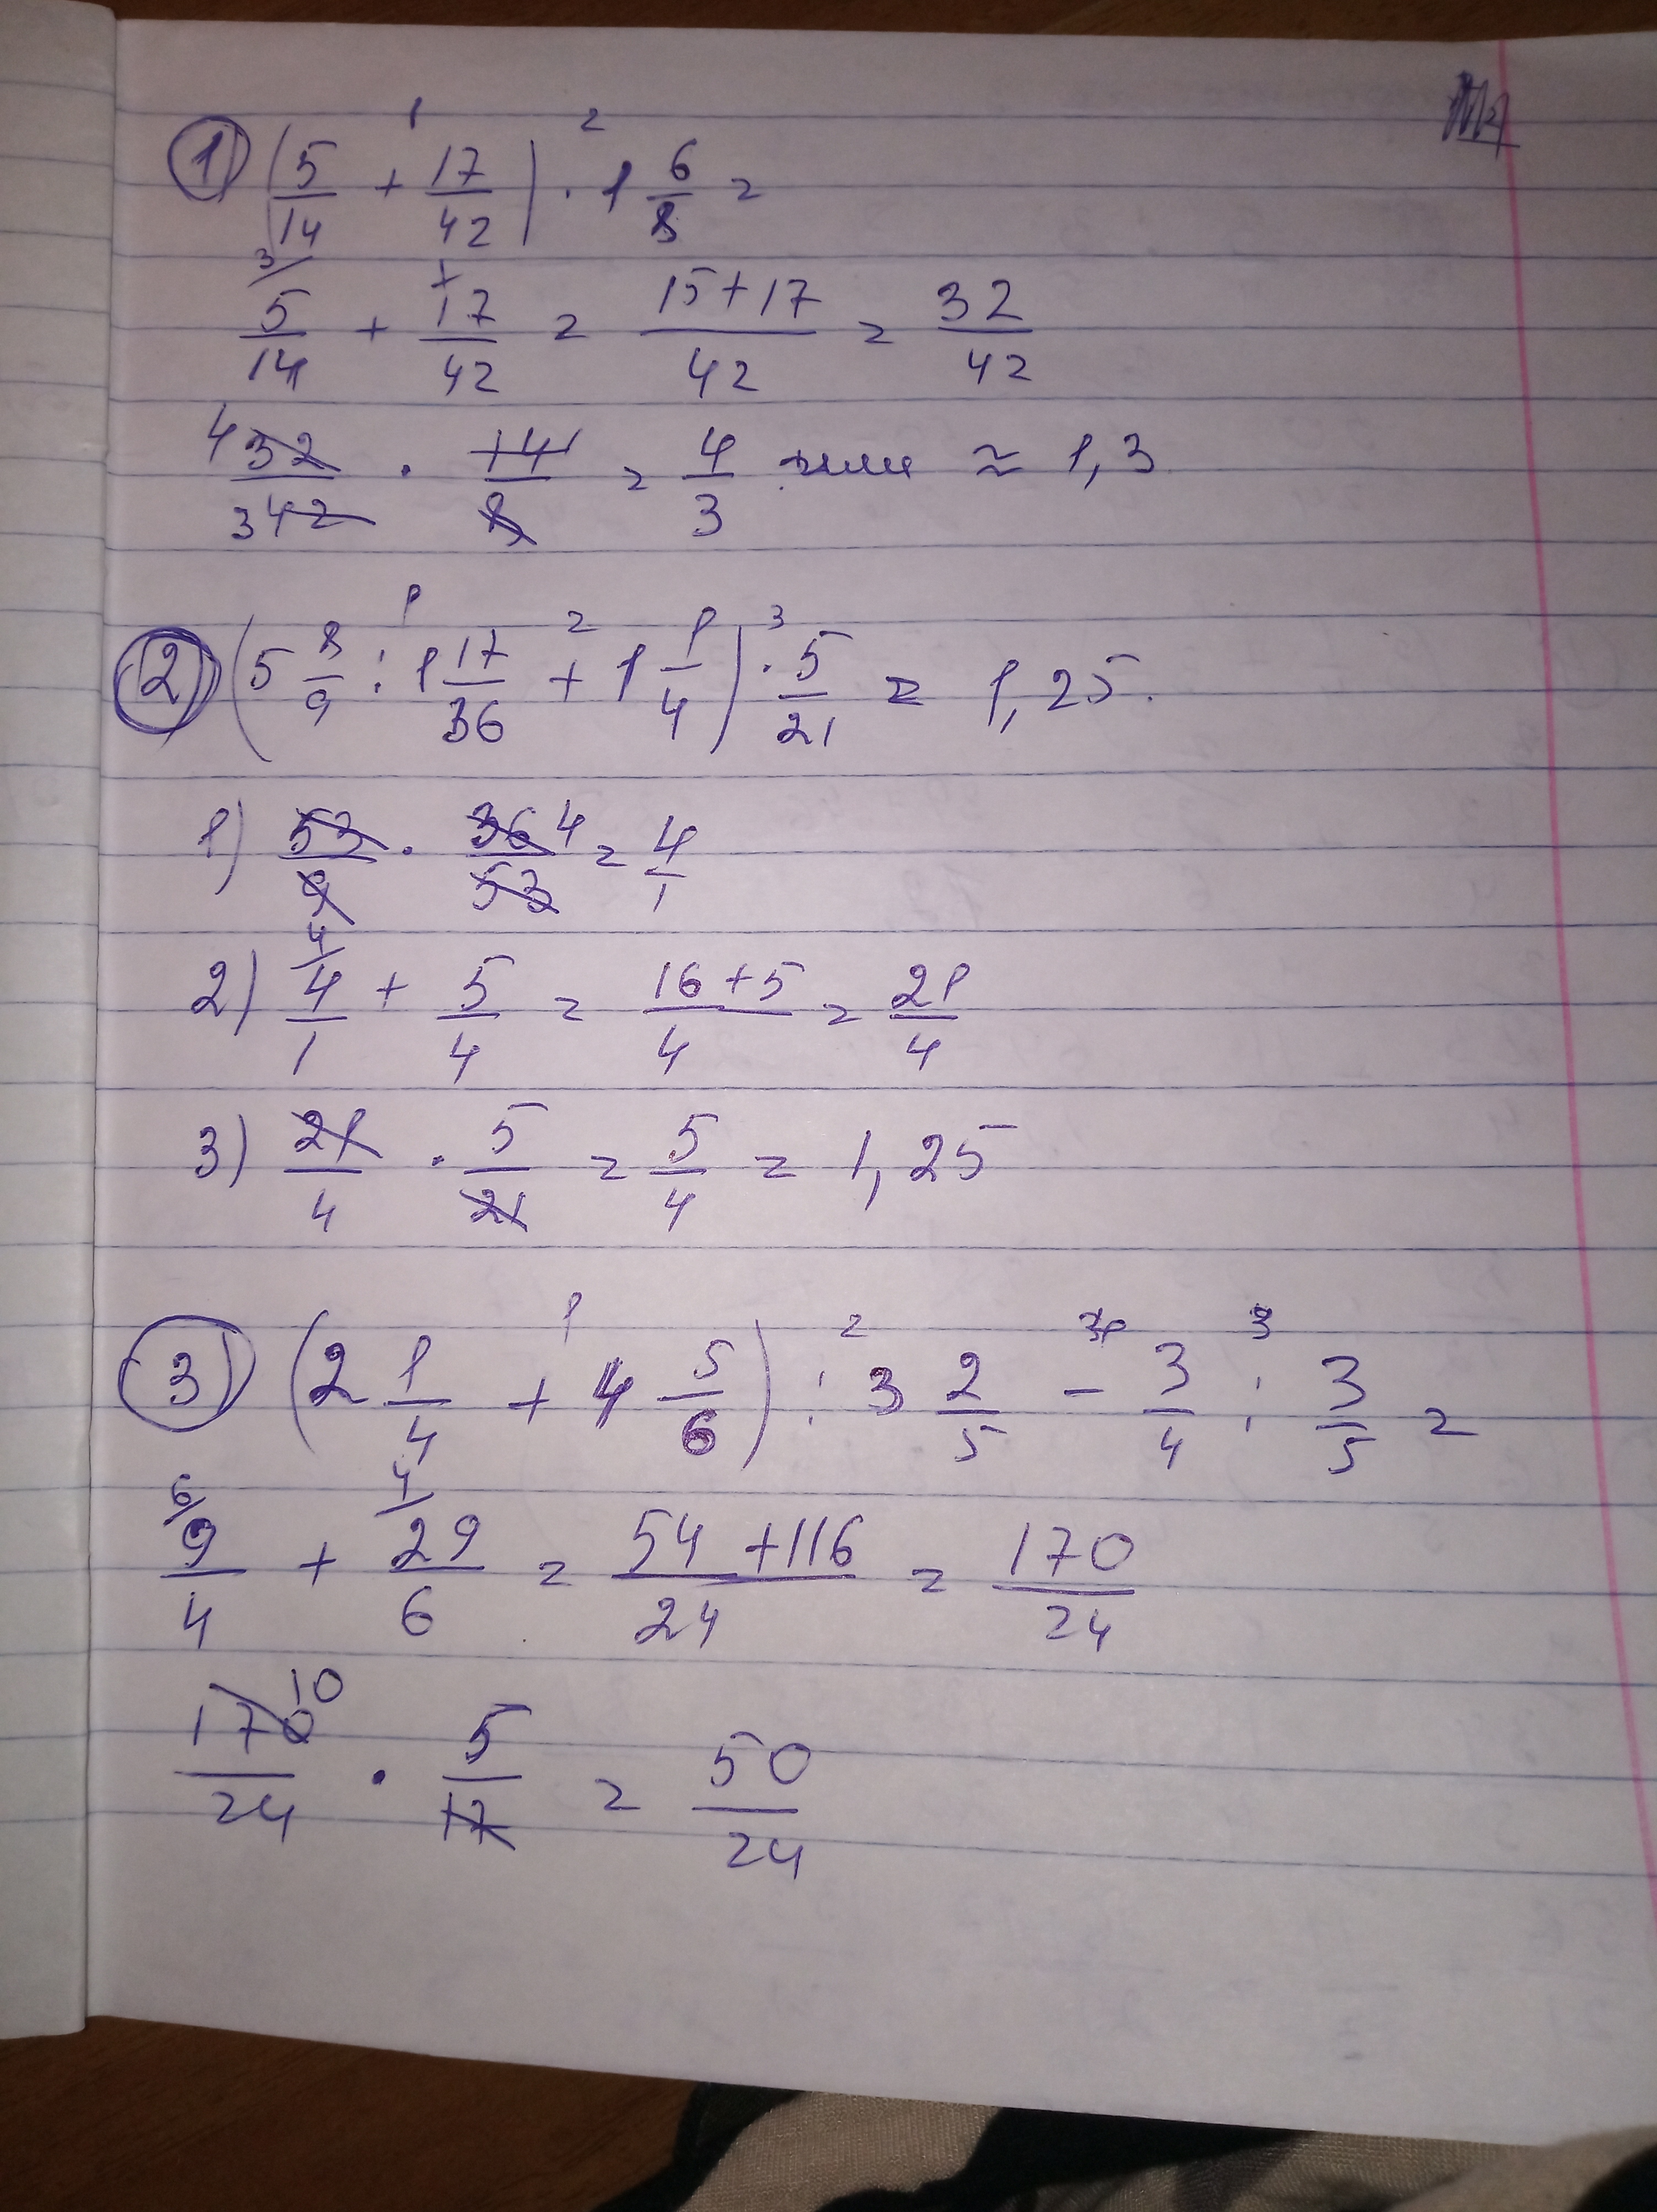 1) (5/14 + 17/42) · 1 6/8 =
5/14 + 17/42 = 15+17/42 = 32/42
32/42 · 14/8 = 4/3 или ≈ 1,3
2) (5 8/9 : 1 17/36 + 1 1/4) · 5/21 = 1,25.
1) 53/9 · 36/53 = 4/1
2) 4/1 + 5/4 = 16+5/4 = 21/4
3) 21/4 · 5/21 = 5/4 = 1,25
3) (2 1/4 + 4 5/6) : 3 2/5 - 3/4 : 3/5 =
9/4 + 29/6 = 54+116/24 = 170/24
170/24 · 5/17 = 50/24